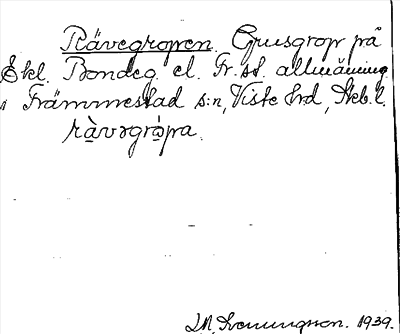 Rävegropen. Grusgrop på
Skl. Bondeg. el. Fr:sd. allmänning
i Främmestad s:n, Viste hrd, Skb. l.
rà̤vəgrò̤pa.
1939.